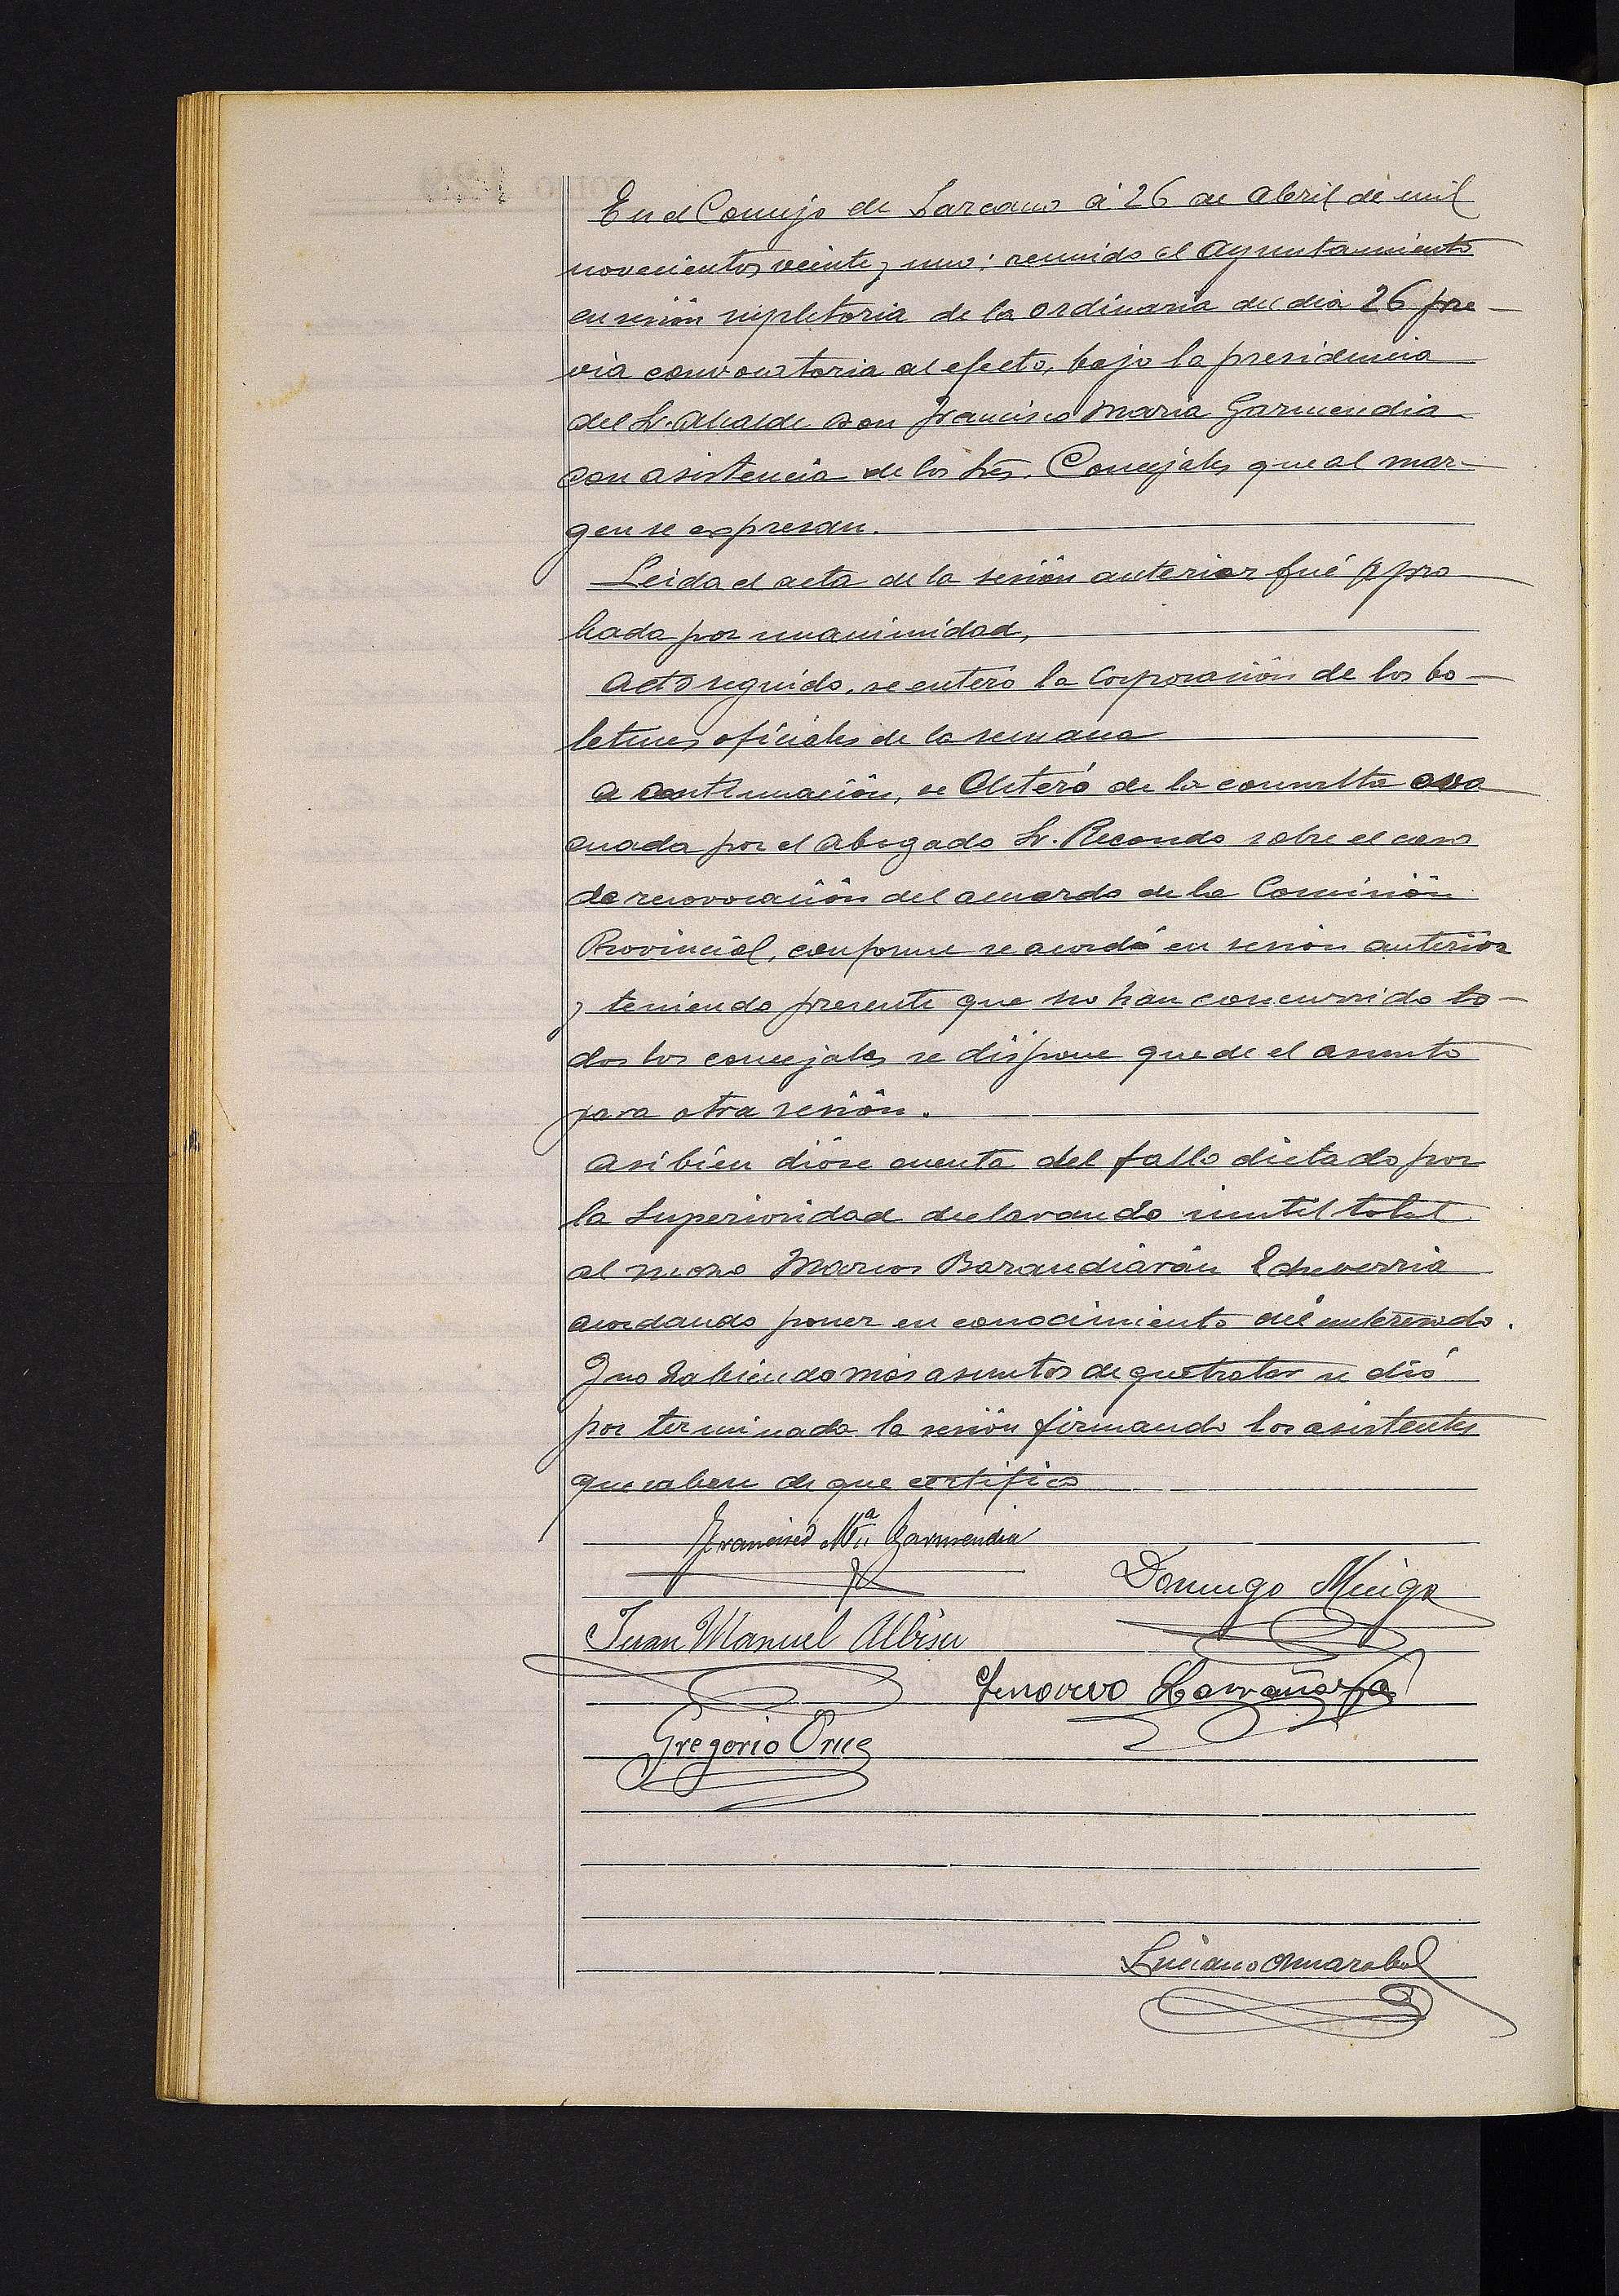 En el Concejo de Lazcano á 26 de Abril de mil
novecientos veinte y uno: reunido el Ayuntamiento
en sesión supletoria de la ordinaria del dia 26 pre-
via convocatoria al efecto, bajo la presidencia
del Sr. Alcalde Don Francisco Maria Garmendia
con asistencia de los Srs. Concejales que al mar-
gen se expresan.
Leida el acta de la sesión anterior fué apro
bada por unanimidad,
Acto seguido, se enteró la Corporación de los bo-
letines oficiales de la semana
A continuación, se enteró de la consulta eva
cuada por el Abogado Sr. Recondo sobre el caso
de revocación del acuerdo de la Comisión
Provincial, conforme se acordó en sesion anterior
y teniendo presente que no han concurrido to-
dos los concejales se dispone quede el asunto
para otra sesión.
Asi bien dióse cuenta del fallo dictado por
la Superioridad declarando inutil total
al mozo Marcos Barandiarán Echeverria
acordando poner en conocimiento del interesado.
Y no habiendo más asuntos de que tratar se dió
por terminada la sesión firmando los asistentes
que saben de que certifico
Francisco Mª Garmendia
Domingo Munga
Juan Manuel Albisu
Genovevo Larrañaga
Gregorio Oruez
Luciano Amarabal